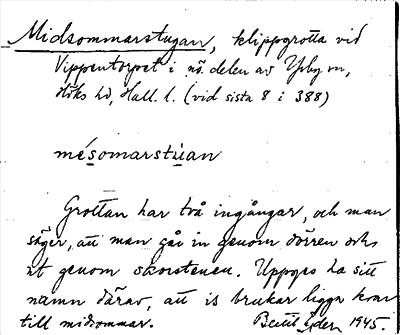 Midsommarstugan, klippgrotta vid
Vippentorpet i nö. delen av Ysby sn,
Höks hd, Hall. l. (vid sista 8 i 388)
mésomarstúan
Grottan har två ingångar, och man
säger, att man går in genom dörren och
ut genom skorstenen. Uppges ha sitt
namn därav, att is brukar ligga kvar
till midsommar. Bertil Ejder 1945.